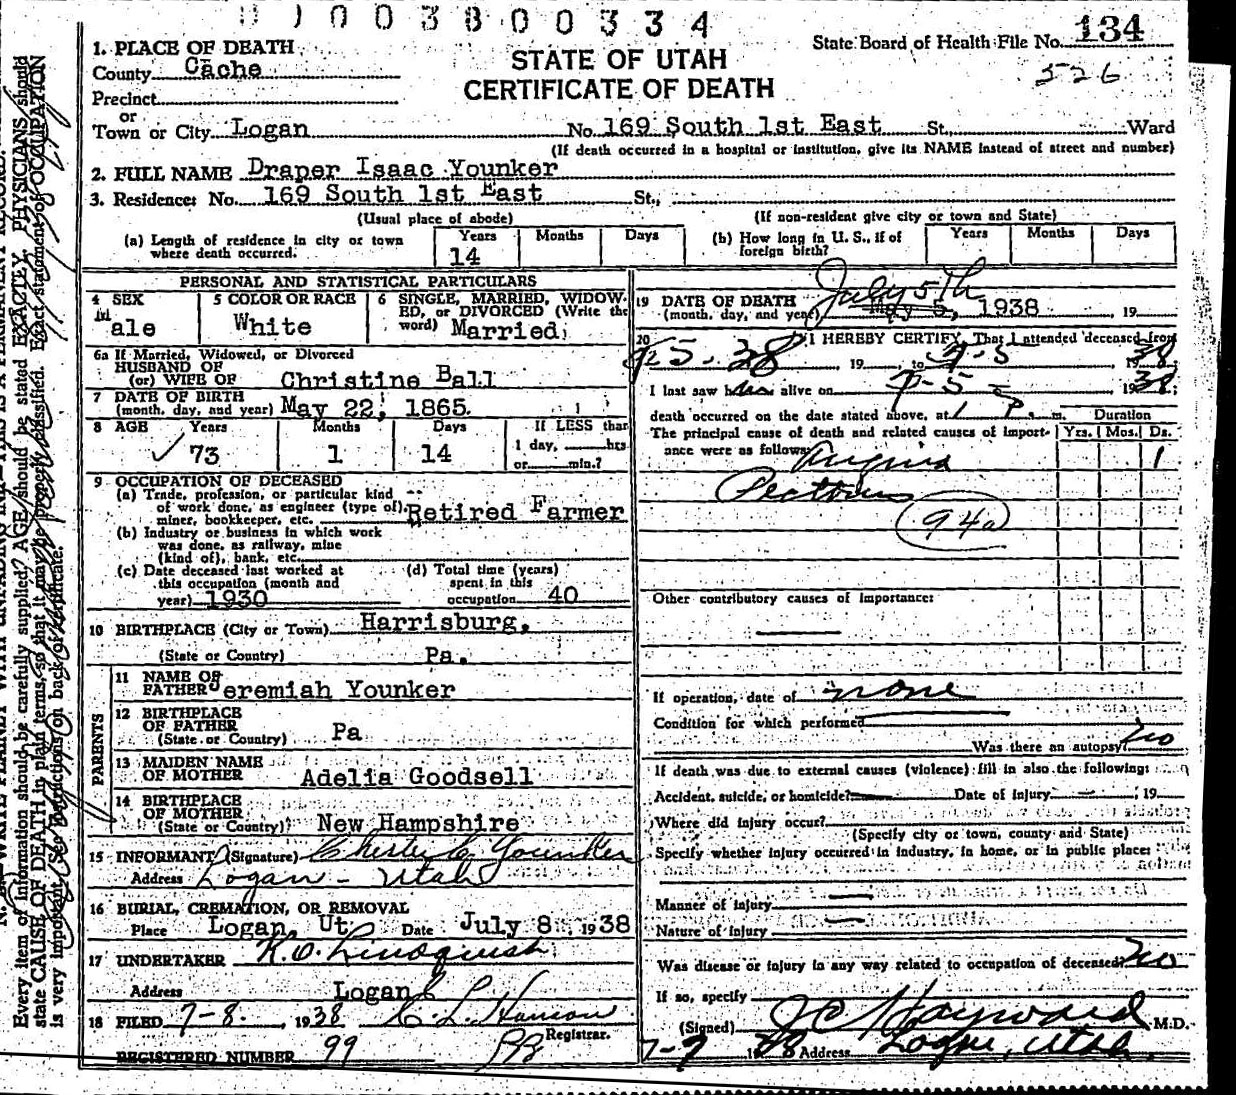 0 0 3 8 0 0 3 3 4
State Board of Health File No. 134
526
STATE OF UTAH
CERTIFICATE OF DEATH
1. PLACE OF DEATH
County Cache
Precinct
or
Town or City Logan No. 169 South 1st East St., Ward
(If death occurred in a hospital or institution, give its NAME instead of street and number)
2. FULL NAME Draper Isaac Younker
3. Residence: No. 169 South 1st East St.,
(Usual place of abode) (If non-resident give city or town and State)
(a) Length of residence in city or town where death occurred. Years 14 Months Days
(b) How long in U. S., if of foreign birth? Years Months Days
PERSONAL AND STATISTICAL PARTICULARS
4 SEX Male
5 COLOR OR RACE White
6 SINGLE, MARRIED, WIDOWED, or DIVORCED (Write the word) Married
6a If Married, Widowed, or Divorced
HUSBAND OF
(or) WIFE OF Christine Ball
7 DATE OF BIRTH
(month, day, and year) May 22, 1865
8 AGE Years 73 Months 1 Days 14 If LESS than 1 day, hrs. or min.?
9 OCCUPATION OF DECEASED
(a) Trade, profession, or particular kind
of work done, as engineer (type of),
miner, bookkeeper, etc. Retired Farmer
(b) Industry or business in which work
was done, as railway, mine
(kind of), bank, etc.
(c) Date deceased last worked at this occupation (month and year) 1930
(d) Total time (years) spent in this occupation 40
10 BIRTHPLACE (City or Town) Harrisburg,
(State or Country) Pa.
PARENTS
11 NAME OF FATHER Jeremiah Younker
12 BIRTHPLACE OF FATHER
(State or Country) Pa
13 MAIDEN NAME OF MOTHER Adelia Goodsell
14 BIRTHPLACE OF MOTHER
(State or Country) New Hampshire
15 INFORMANT (Signature) Chester C Younker
Address Logan - Utah
16 BURIAL, CREMATION, OR REMOVAL
Place Logan, Ut Date July 8, 1938
17 UNDERTAKER K.O. Lindquist
Address Logan
18 FILED 7-8, 1938 C. L. Hanson
Registrar.
REGISTERED NUMBER 99
19 DATE OF DEATH July 5th
(month, day, and year) May 5, 1938, 19
20 I HEREBY CERTIFY, That I attended deceased from
7-5-38, 19 to 7-5 1938
I last saw him alive on 7-5- 1938;
death occurred on the date stated above, at 1 P. m. Duration
The principal cause of death and related causes of importance were as follows: Yrs. Mos. Ds.
Angina 1
Pectoris
94a
Other contributory causes of importance:
If operation, date of none
Condition for which performed
Was there an autopsy? No
If death was due to external causes (violence) fill in also the following:
Accident, suicide, or homicide? Date of injury 19
Where did injury occur?
(Specify city or town, county and State)
Specify whether injury occurred in industry, in home, or in public place:
Manner of injury
Nature of injury
Was disease or injury in any way related to occupation of deceased? No
If so, specify
(Signed) J C Hayward M.D.
7-7 1938 Address Logan, Utah.
Every item of information should be carefully supplied. AGE should be stated EXACTLY. PHYSICIANS should
state CAUSE OF DEATH in plain terms, so that it may be properly classified. Exact statement of OCCUPATION
is very important. (See instructions on back of certificate.